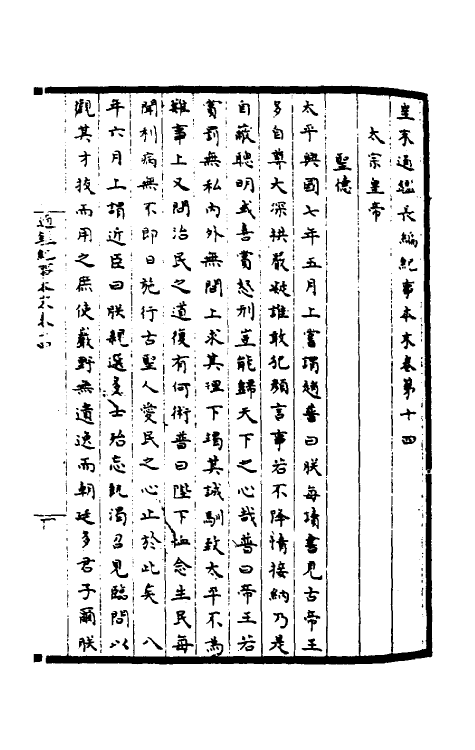 皇宋通鑑長編紀事本末卷第十四
太宗皇帝
聖德
太平興國七年五月上嘗謂趙普曰朕每讀書見古帝王
多自尊大深拱嚴疑誰敢犯顏言事若不降情接納乃是
自蔽聰明或喜賞怒刑豈能歸天下之心哉普曰帝王若
賞罰無私內外無間上求其理下竭其誠馴致太平不為
難事上又問治民之道復有何術普曰陛下恤念生民每
聞利病無不即日施行古聖人愛民之心止於此矣 八
年六月上謂近臣曰朕親選多士殆忘飢渴召見臨問以
觀其才拔而用之庶使巖野無遺逸而朝廷多君子爾朕